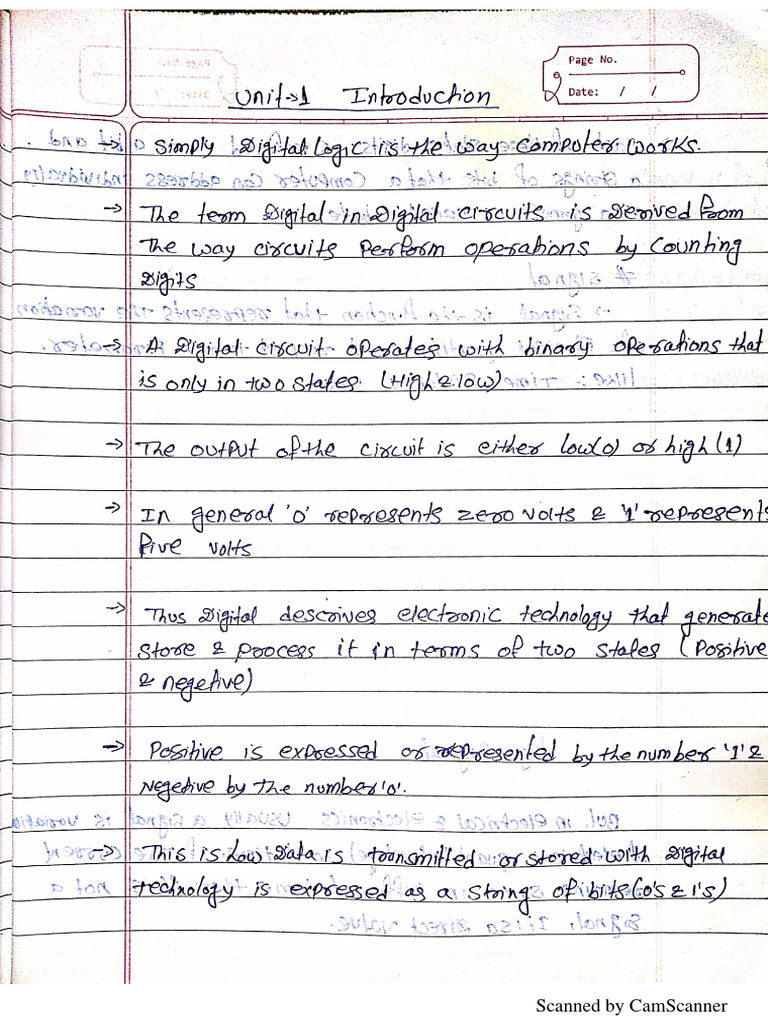 Page No.
Date: / /
Unit→1 Introduction
→ Simply Digital Logic is the way computer works.
→ The term Digital in Digital circuits is Derived from
The way circuits Perform operations by Counting
Digits
→ A Digital circuit operates with binary operations that
is only in two states (High & low)
→ The output of the circuit is either low(0) or high (1)
→ In general '0' represents zero volts & '1' represents
five volts
→ Thus Digital descrives electronic technology that generate
store & process it in terms of two states (Positive
& negetive)
→ Positive is expressed or represented by the number '1' &
Negetive by the number '0'.
→ This is how Data is transmitted or stored with Digital
technology is expressed as a string of bits (0's & 1's)
Scanned by CamScanner